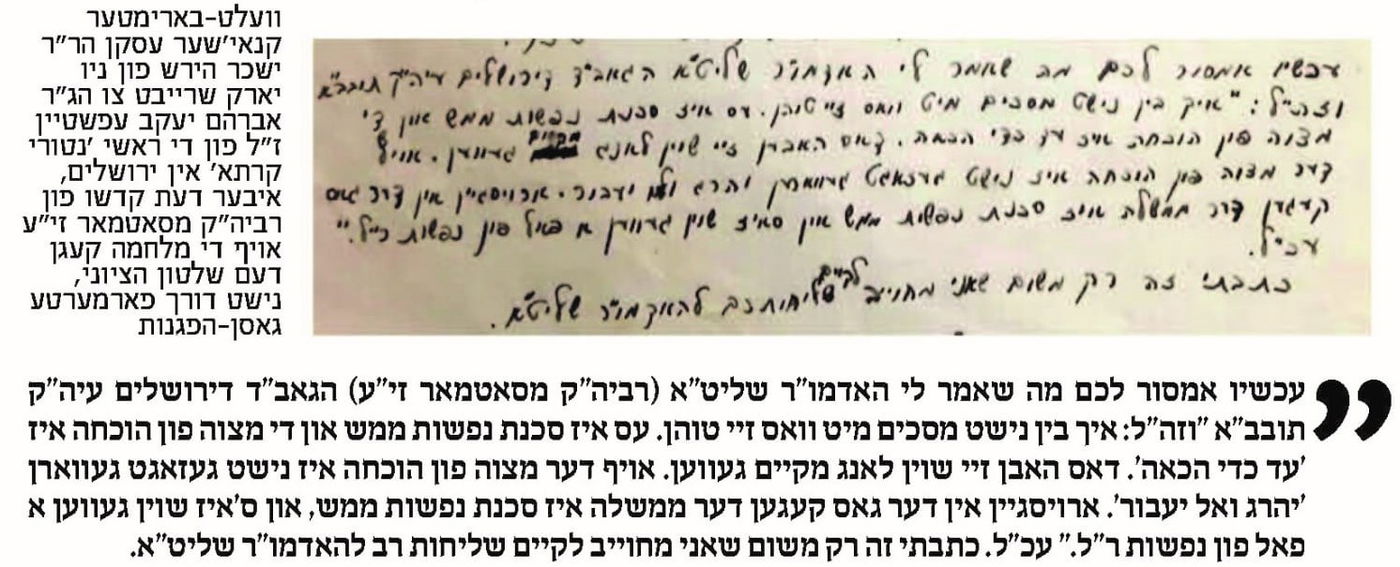 וועלט-בארימטער
קנאי'שער עסקן הר"ר
ישכר הירש פון ניו
יארק שרייבט צו הג"ר
אברהם יעקב עפשטיין
ז"ל פון די ראשי 'נטורי
קרתא' אין ירושלים,
איבער דעת קדשו פון
רביה"ק מסאטמאר זי"ע
אויף די מלחמה קעגן
דעם שלטון הציוני,
נישט דורך פארמערטע
גאסן-הפגנות
עכשיו אמסור לכם מה שאמר לי האדמו"ר שליט"א הגאב"ד דירושלים עיה"ק תובב"א
וזה"ל: "איך בין נישט מסכים מיט וואס זיי טוהן. עס איז סכנת נפשות ממש און די
מצוה פון הוכחה איז עד כדי הכאה. דאס האבן זיי שוין לאנג מקיים געווען. אויף
דער מצוה פון הוכחה איז נישט געזאגט געווארן יהרג ואל יעבור. ארויסגיין אין דער גאס
קעגען דער ממשלה איז סכנת נפשות ממש און ס'איז שוין געווען א פאל פון נפשות ר"ל."
עכ"ל.
כתבתי זה רק משום שאני מחוייב לקיים שליחותכם להאדמו"ר שליט"א.
" עכשיו אמסור לכם מה שאמר לי האדמו"ר שליט"א (רביה"ק מסאטמאר זי"ע) הגאב"ד דירושלים עיה"ק
תובב"א "וזה"ל: איך בין נישט מסכים מיט וואס זיי טוהן. עס איז סכנת נפשות ממש און די מצוה פון הוכחה איז
'עד כדי הכאה'. דאס האבן זיי שוין לאנג מקיים געווען. אויף דער מצוה פון הוכחה איז נישט געזאגט געווארן
'יהרג ואל יעבור'. ארויסגיין אין דער גאס קעגען דער ממשלה איז סכנת נפשות ממש, און ס'איז שוין געווען א
פאל פון נפשות ר"ל." עכ"ל. כתבתי זה רק משום שאני מחוייב לקיים שליחות רב להאדמו"ר שליט"א.